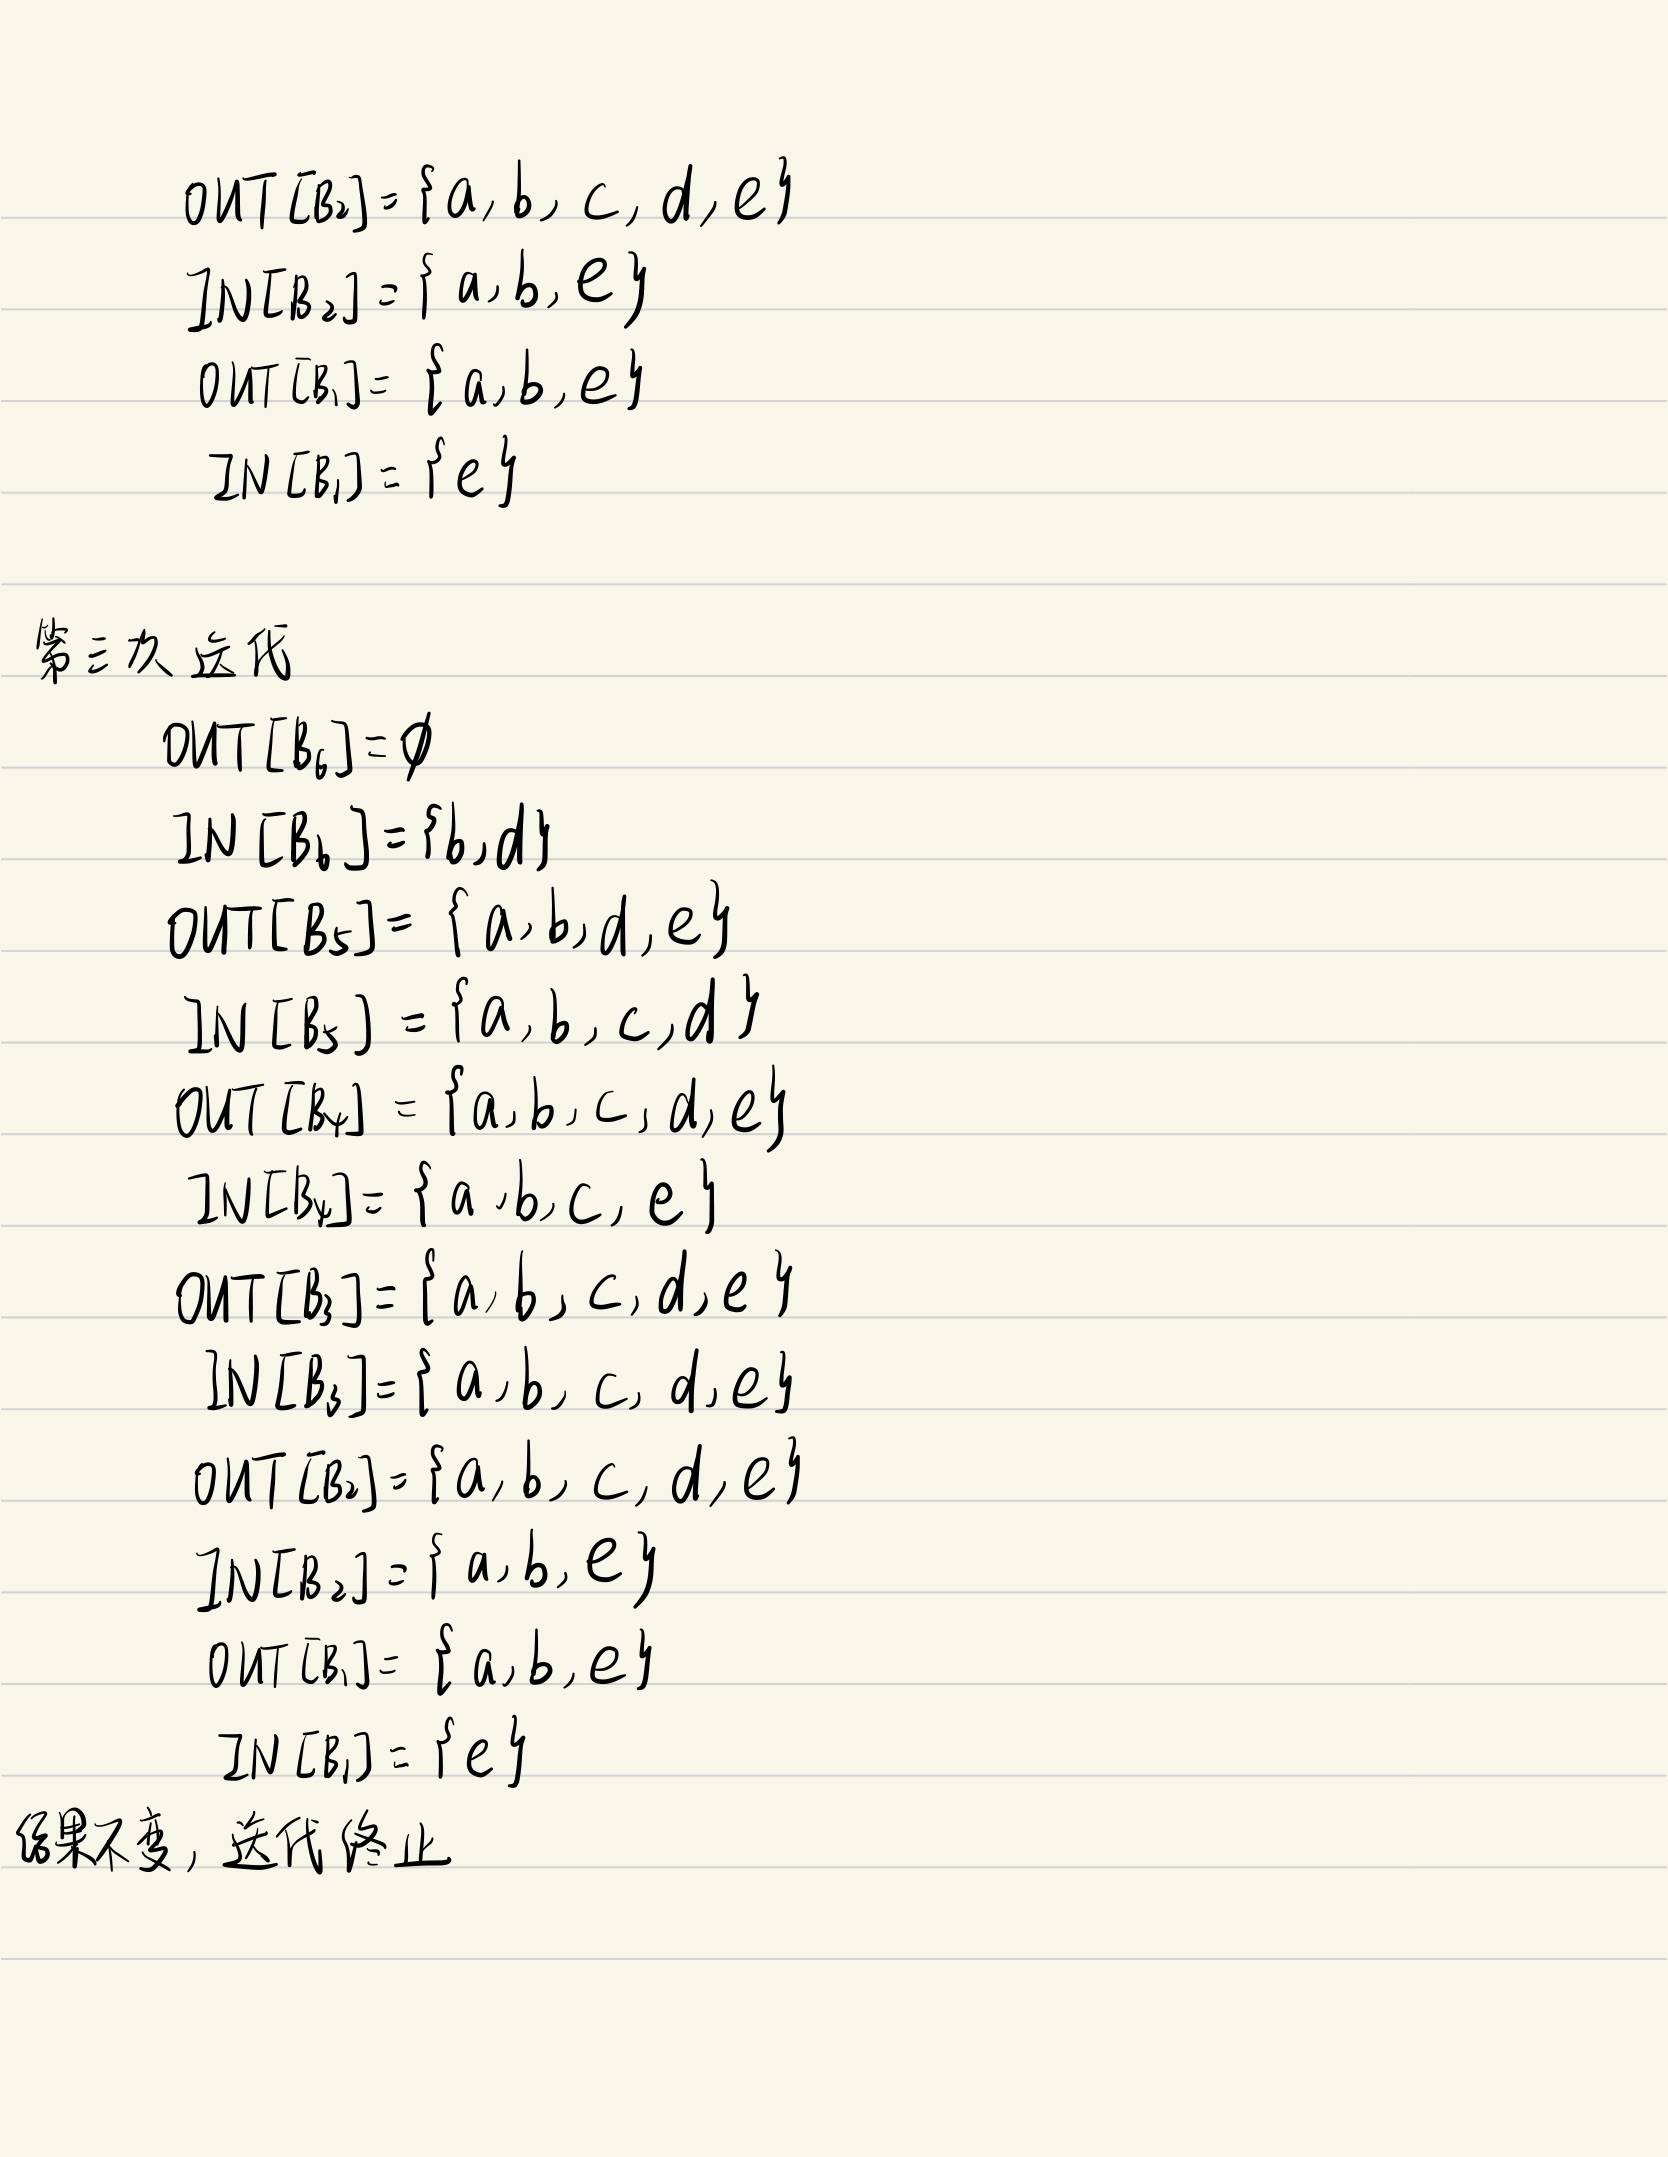 OUT[B₂]={a,b,c,d,e}
IN[B₂]={a,b,e}
OUT[B₁]={a,b,e}
IN[B₁]={e}
第三次迭代
OUT[B₆]=∅
IN[B₆]={b,d}
OUT[B₅]={a,b,d,e}
IN[B₅]={a,b,c,d}
OUT[B₄]={a,b,c,d,e}
IN[B₄]={a,b,c,e}
OUT[B₃]={a,b,c,d,e}
IN[B₃]={a,b,c,d,e}
OUT[B₂]={a,b,c,d,e}
IN[B₂]={a,b,e}
OUT[B₁]={a,b,e}
IN[B₁]={e}
结果不变,迭代终止